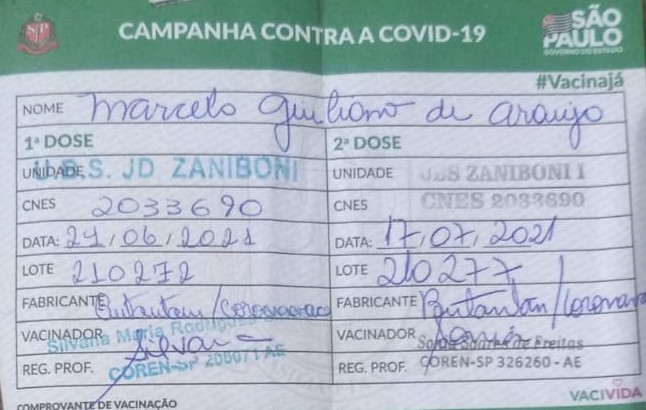 CAMPANHA CONTRA A COVID-19
SÃO PAULO
GOVERNO DO ESTADO
#Vacinajá
NOME Marcelo Giuliano de Araujo
1ª DOSE
UNIDADE U.B.S. JD ZANIBONI
CNES 2033690
DATA: 24/06/2021
LOTE 210272
FABRICANTE Butantan/Coronavac
VACINADOR Silvana Maria Silvana
REG. PROF. COREN-SP AE
2ª DOSE
UNIDADE UBS ZANIBONI I
CNES CNES 2033690
DATA: 17/07/2021
LOTE 210277
FABRICANTE Butantan/Coronavac
VACINADOR Soares de Freitas
REG. PROF. COREN-SP 326260 - AE
COMPROVANTE DE VACINAÇÃO
VACIVIDA